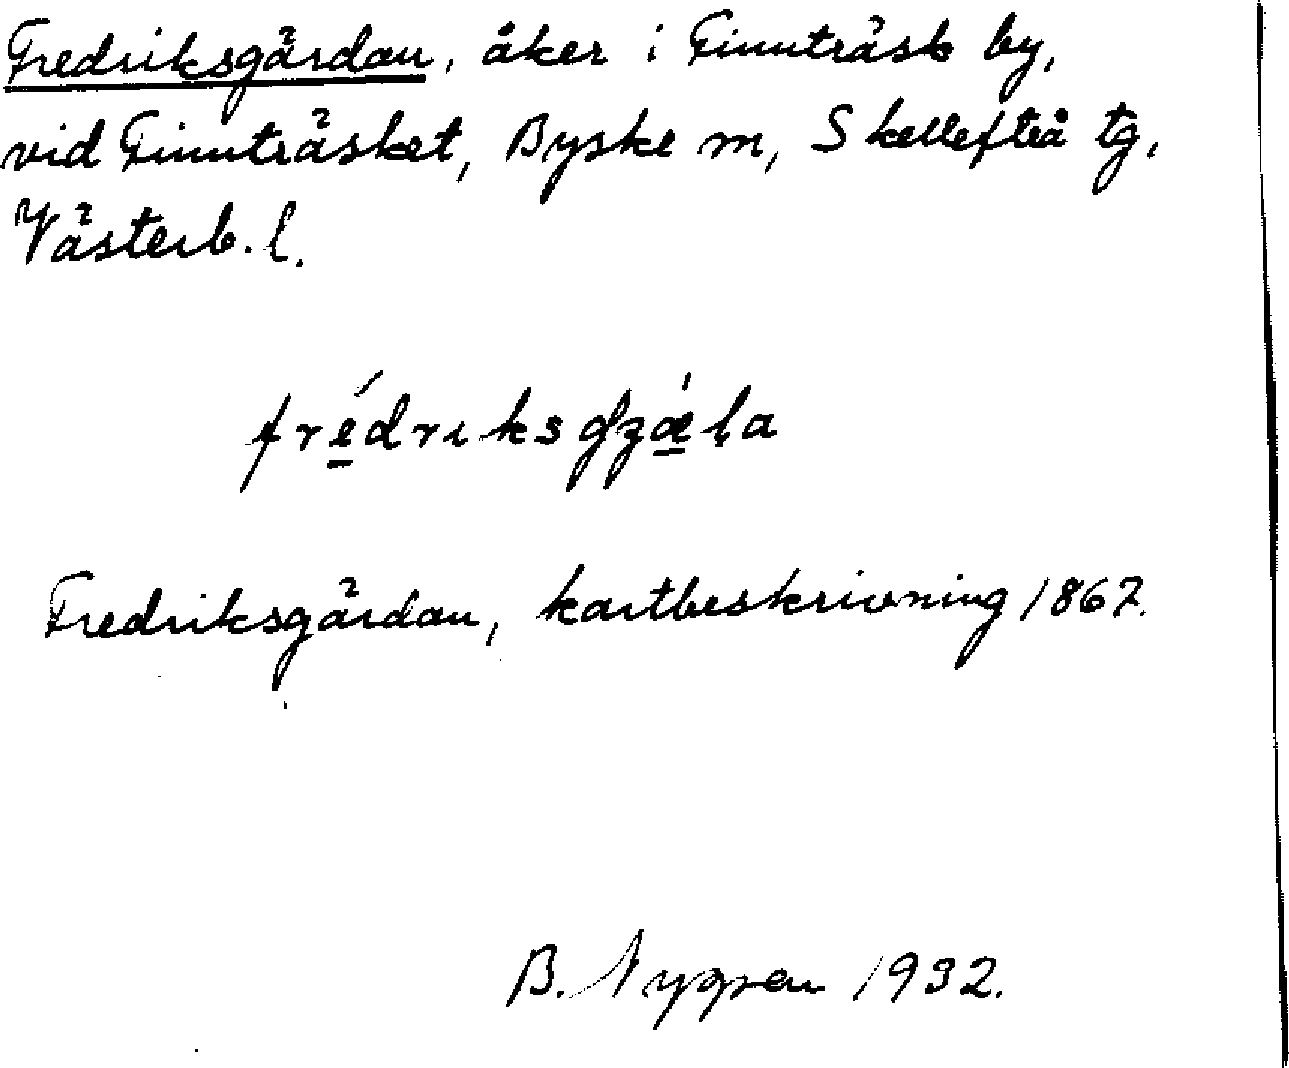 Fredriksgärdan, åker i Finnträsk by,
vid Finnträsket, Byske m, Skellefteå tg,
Västerb. l.
Fredriksgärdan, kartbeskrivning 1867.
B. Nygren 1932.